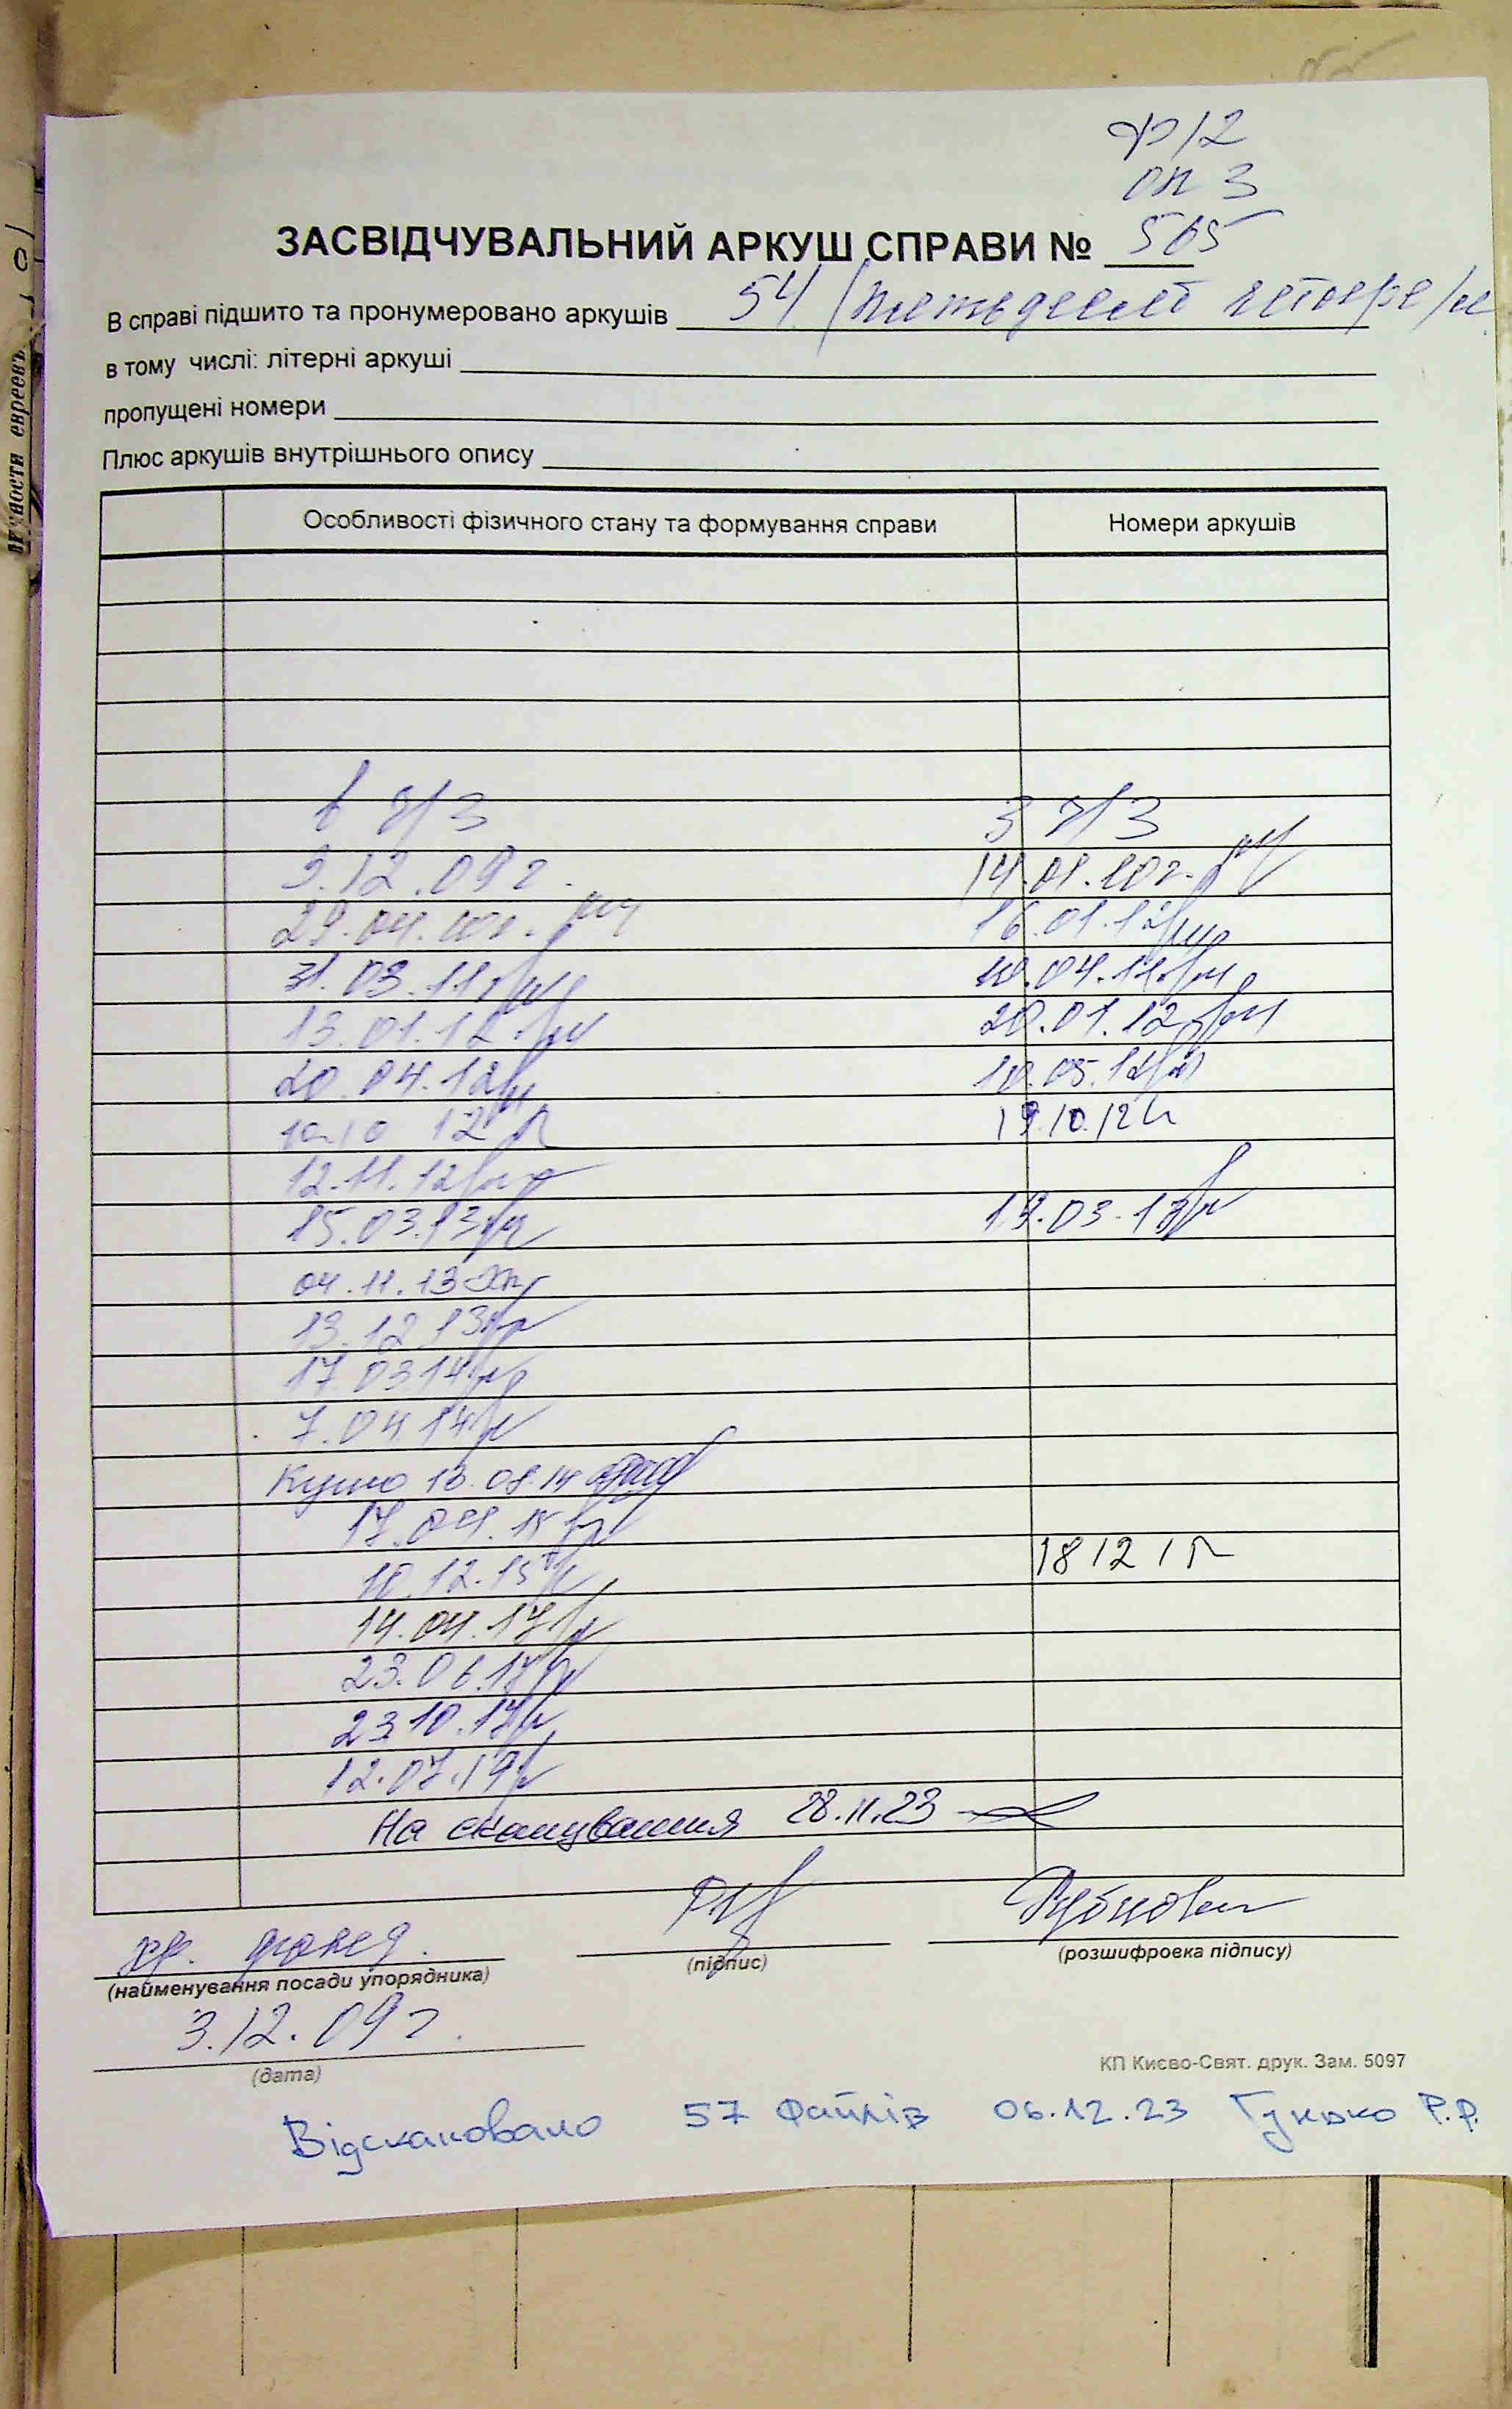 ф 12
оп 3
ЗАСВІДЧУВАЛЬНИЙ АРКУШ СПРАВИ № 565
В справі підшито та пронумеровано аркушів 54
в тому числі: літерні аркуші
пропущені номери
Плюс аркушів внутрішнього опису
Особливості фізичного стану та формування справи Номери аркушів
в ч/з 3 ч/з
3.12.09 г. 14.01.10 г.
29.04.10 г. 16.01.12
31.03.11 10.04.11
13.01.12 20.01.12
20.04.12 10.05.12
10.10 12 19.10.12
12.11.12
15.03.13 19.03.13
04.11.13
13.12.13
17.03.14
7.04.14
13.08.14
17.04.15
10.12.15 18 12 15
14.04.17
23.06.17
23.10.17
12.07.19
На сканування 28.11.23
(найменування посади упорядника) (підпис) (розшифровка підпису)
3.12.09 г.
(дата)
КП Києво-Свят. друк. Зам. 5097
Відскановано 57 файлів 06.12.23 Гунько Р.Р.